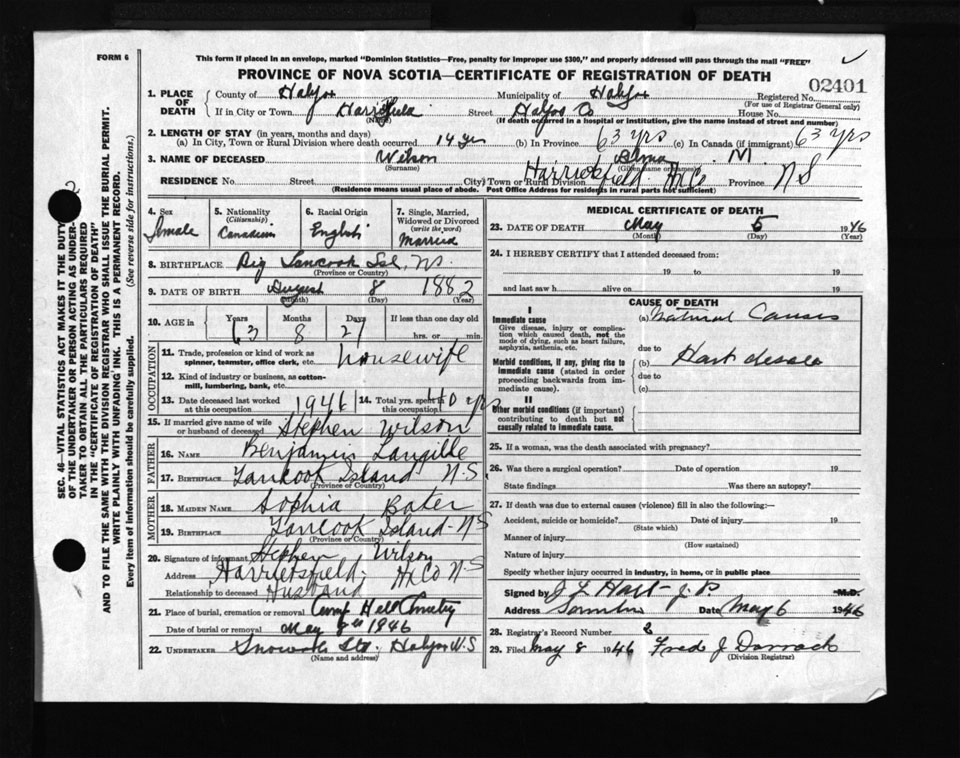 FORM 6
This form if placed in an envelope, marked "Dominion Statistics—Free, penalty for improper use $300," and properly addressed will pass through the mail "FREE"
PROVINCE OF NOVA SCOTIA—CERTIFICATE OF REGISTRATION OF DEATH
02401
1. PLACE OF DEATH
County of Halifax Municipality of Halifax Registered No.
(For use of Registrar General only)
If in City or Town Harriesfield Street Halifax Co House No.
(Name)
(If death occurred in a hospital or institution, give the name instead of street and number)
2. LENGTH OF STAY (in years, months and days)
(a) In City, Town or Rural Division where death occurred 14 yrs (b) In Province 63 yrs (c) In Canada (if immigrant) 63 yrs
3. NAME OF DECEASED Wilson M.
(Surname) (Given name or names)
RESIDENCE No. Street City, Town or Rural Division Harrietsfield Hx Co Province N S
(Residence means usual place of abode. Post Office Address for residents in rural parts not sufficient)
4. Sex Female
5. Nationality (Citizenship) Canadian
6. Racial Origin English
7. Single, Married, Widowed or Divorced (write the word) Married
8. BIRTHPLACE Big Tancook Isl, N.S.
(Province or Country)
9. DATE OF BIRTH August 8 1882
(Month) (Day) (Year)
10. AGE in Years Months Days If less than one day old
63 8 27 hrs. or min.
OCCUPATION
11. Trade, profession or kind of work as spinner, teamster, office clerk, etc. housewife
12. Kind of industry or business, as cotton-mill, lumbering, bank, etc.
13. Date deceased last worked at this occupation 1946
14. Total yrs. spent in this occupation 40 yrs
15. If married give name of wife or husband of deceased Stephen Wilson
FATHER
16. Name Benjamin Langille
17. Birthplace Tancook Island N.S.
(Province or Country)
MOTHER
18. Maiden Name Sophia Baker
19. Birthplace Tancook Island N S
(Province or Country)
20. Signature of informant Stephen Wilson
Address Harrietsfield, Hx Co N.S
Relationship to deceased Husband
21. Place of burial, cremation or removal Camp Hill Cemetry
Date of burial or removal May 8th 1946
22. UNDERTAKER Snow Ltd. Halifax N.S
(Name and address)
MEDICAL CERTIFICATE OF DEATH
23. DATE OF DEATH May 5 1946
(Month) (Day) (Year)
24. I HEREBY CERTIFY that I attended deceased from:
19 to 19
and last saw h alive on 19
CAUSE OF DEATH
I
Immediate cause (a) Natural Causes
Give disease, injury or complication which caused death, not the mode of dying, such as heart failure, asphyxia, asthenia, etc.
due to
Morbid conditions, if any, giving rise to immediate cause (stated in order proceeding backwards from immediate cause).
(b) Hart desase
due to
(c)
II
Other morbid conditions (if important) contributing to death but not causally related to immediate cause.
25. If a woman, was the death associated with pregnancy?
26. Was there a surgical operation? Date of operation 19
State findings Was there an autopsy?
27. If death was due to external causes (violence) fill in also the following:—
Accident, suicide or homicide? Date of injury 19
(State which)
Manner of injury
(How sustained)
Nature of injury
Specify whether injury occurred in industry, in home, or in public place
Signed by J L Hart J.P. M.D.
Address Date May 6 1946
28. Registrar's Record Number 2
29. Filed May 8 1946 Fred J Darrach
(Division Registrar)
2
SEC. 46—VITAL STATISTICS ACT MAKES IT THE DUTY
OF THE UNDERTAKER OR PERSON ACTING AS UNDER-
TAKER TO OBTAIN ALL THE PARTICULARS REQUIRED
IN THE "CERTIFICATE OF REGISTRATION OF DEATH"
AND TO FILE THE SAME WITH THE DIVISION REGISTRAR WHO SHALL ISSUE THE BURIAL PERMIT.
WRITE PLAINLY WITH UNFADING INK. THIS IS A PERMANENT RECORD.
Every item of information should be carefully supplied. (See reverse side for instructions.)